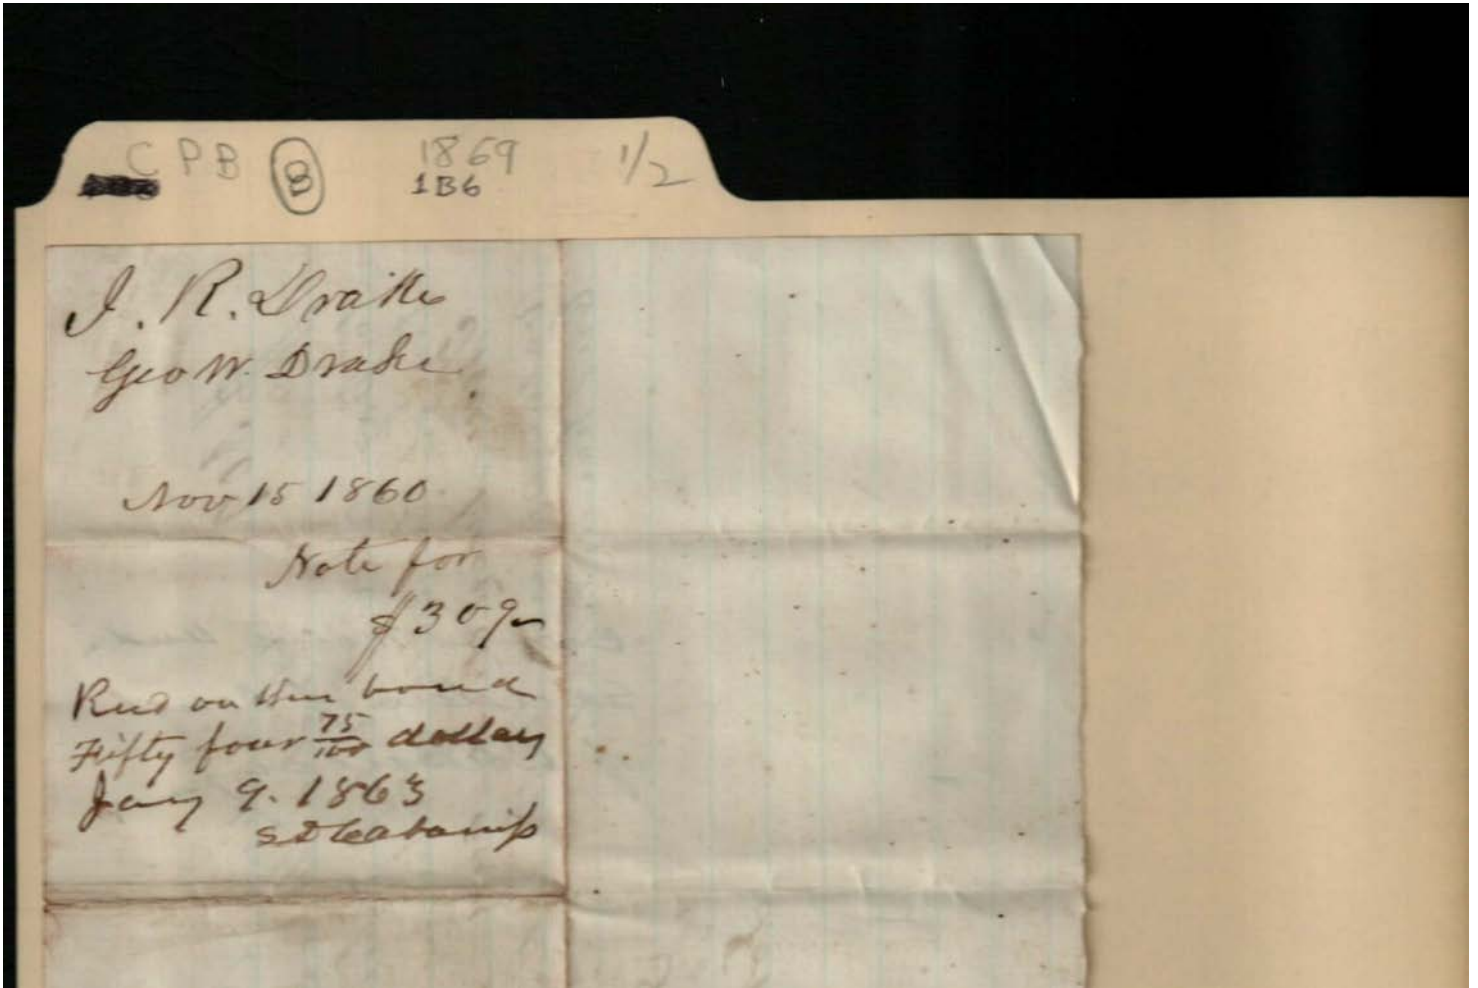 C P B B 1869 1/2
1B6
J. R. Drake
Geo W. Drake
Nov 15 1860
Note for
$309
Recd on this bond
Fifty four 75/100 dollars
Jany 9. 1863
S D Cabaniss